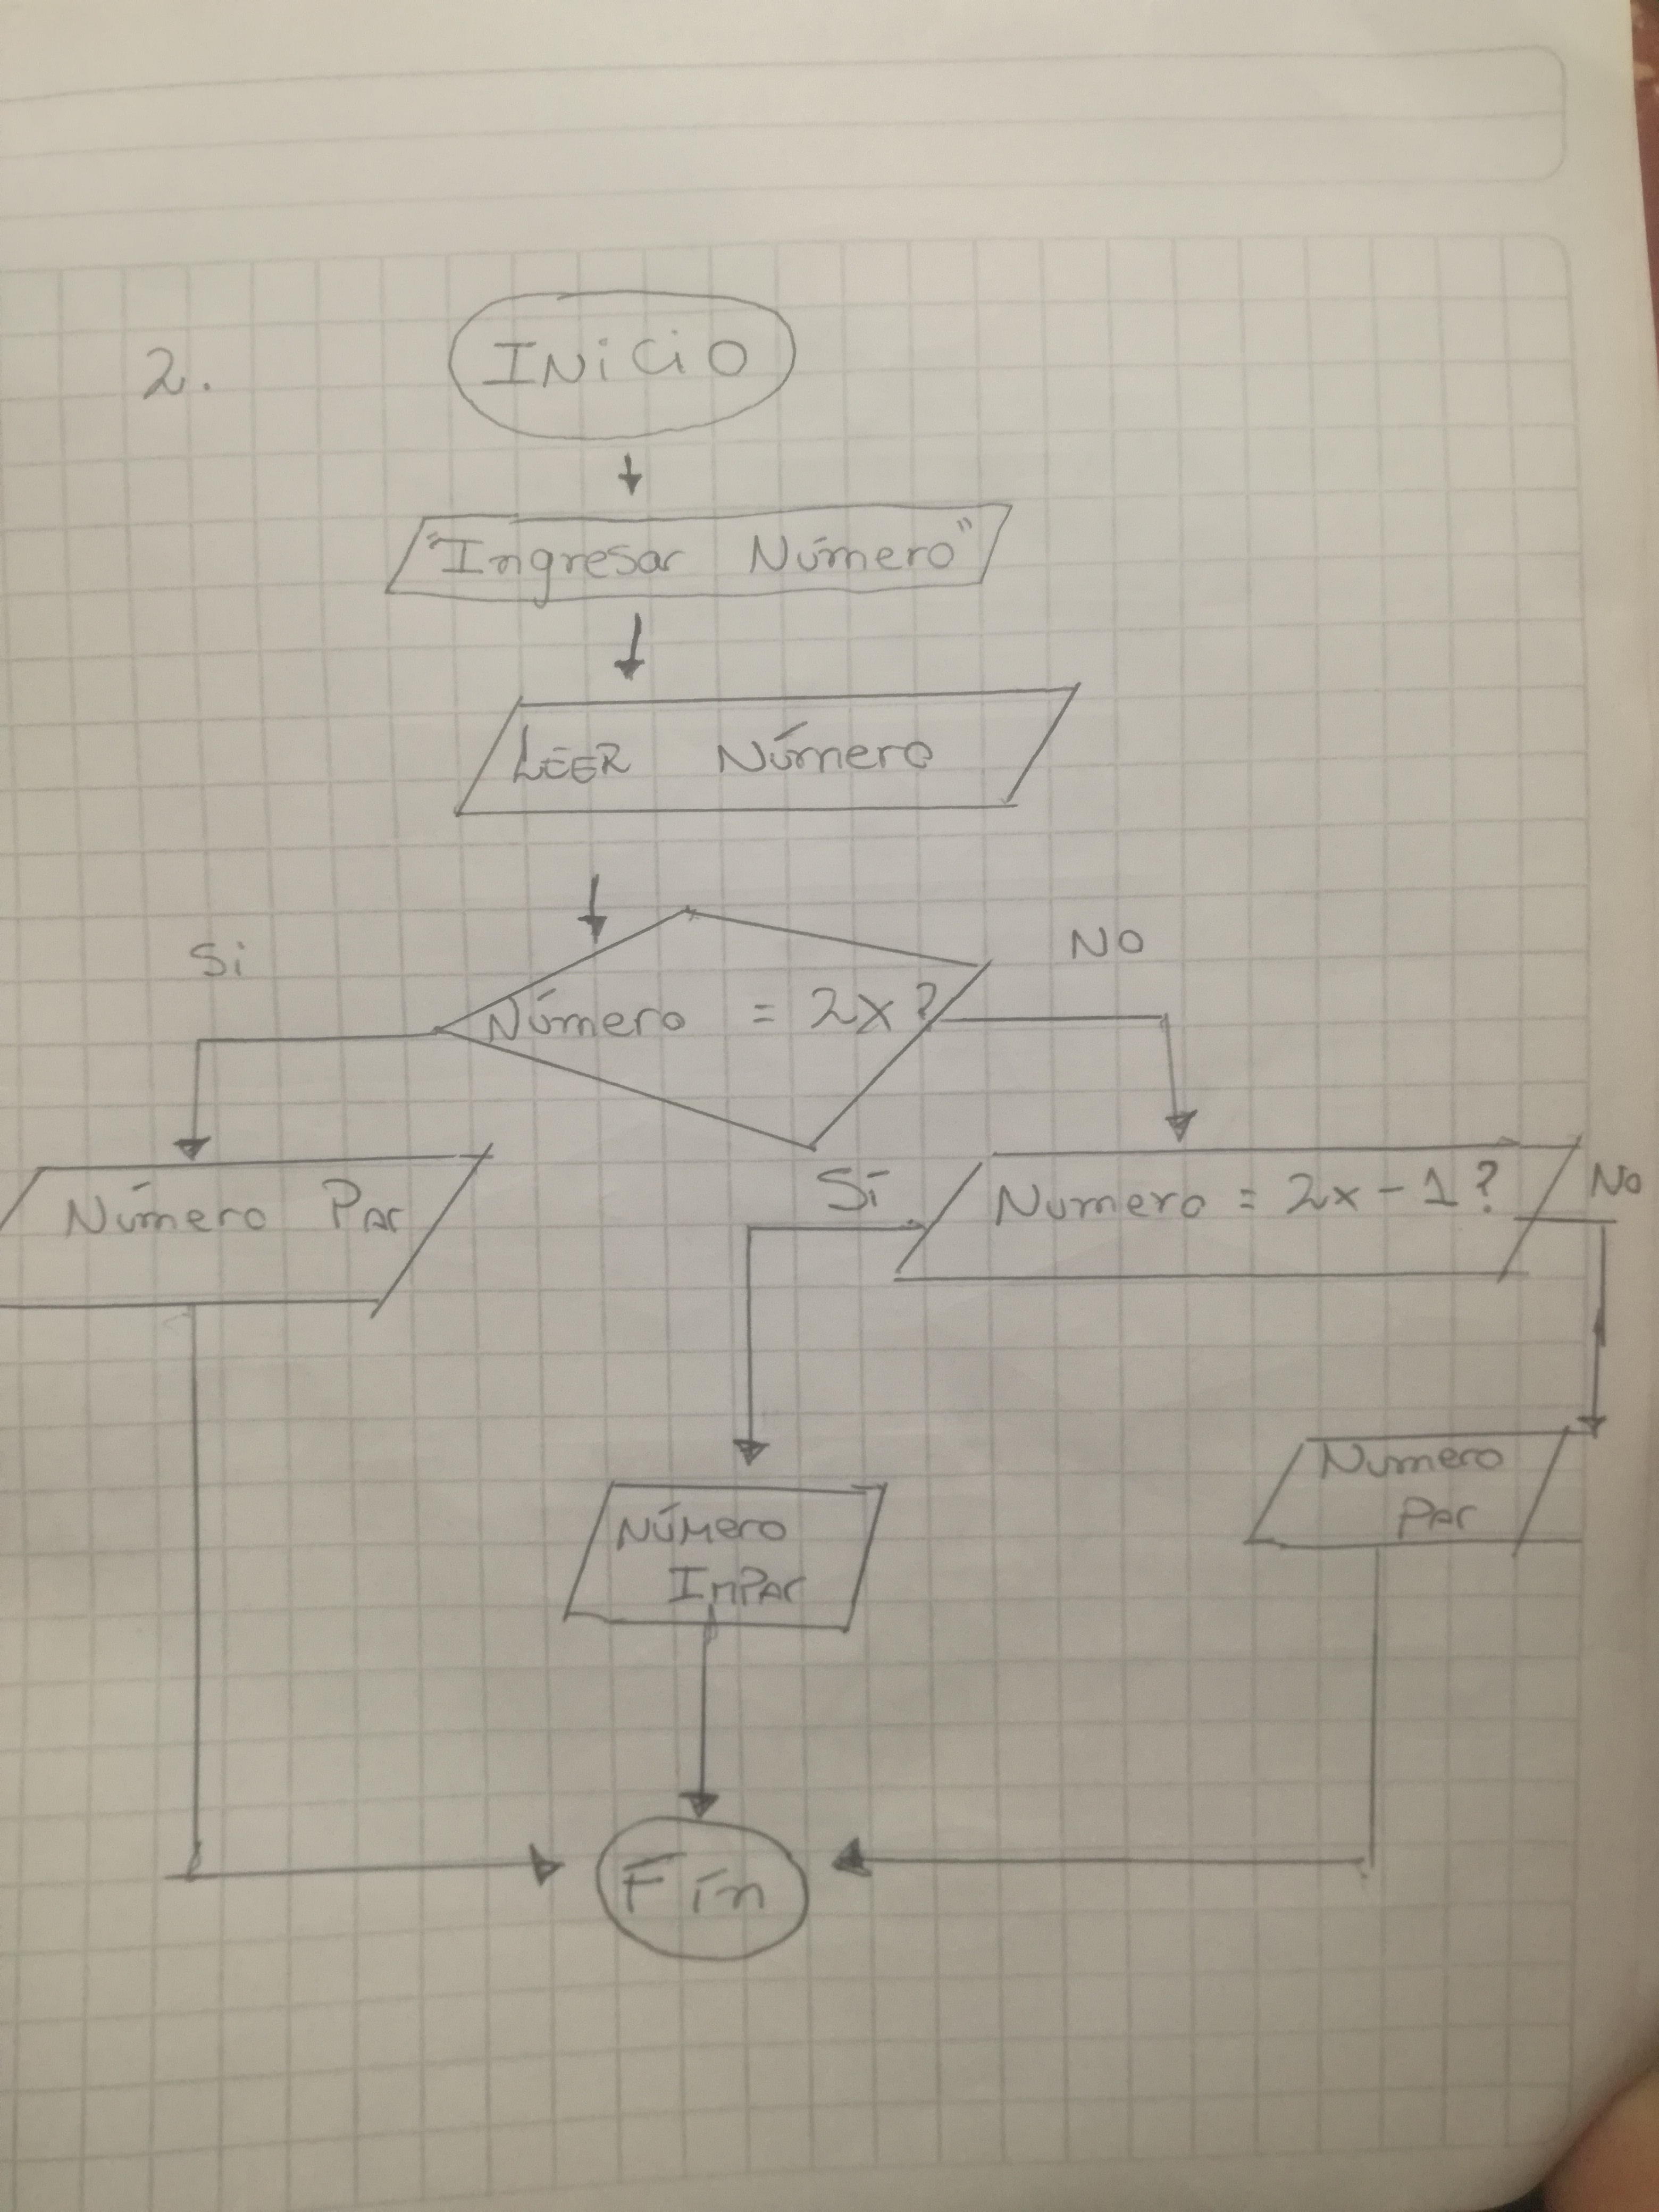 2.
INiCiO
"Ingresar Número"
LEER Número
Si
NO
Número = 2x?
Número Par
Sí
Numero = 2x - 1?
No
Número
Impar
Numero
Par
Fin